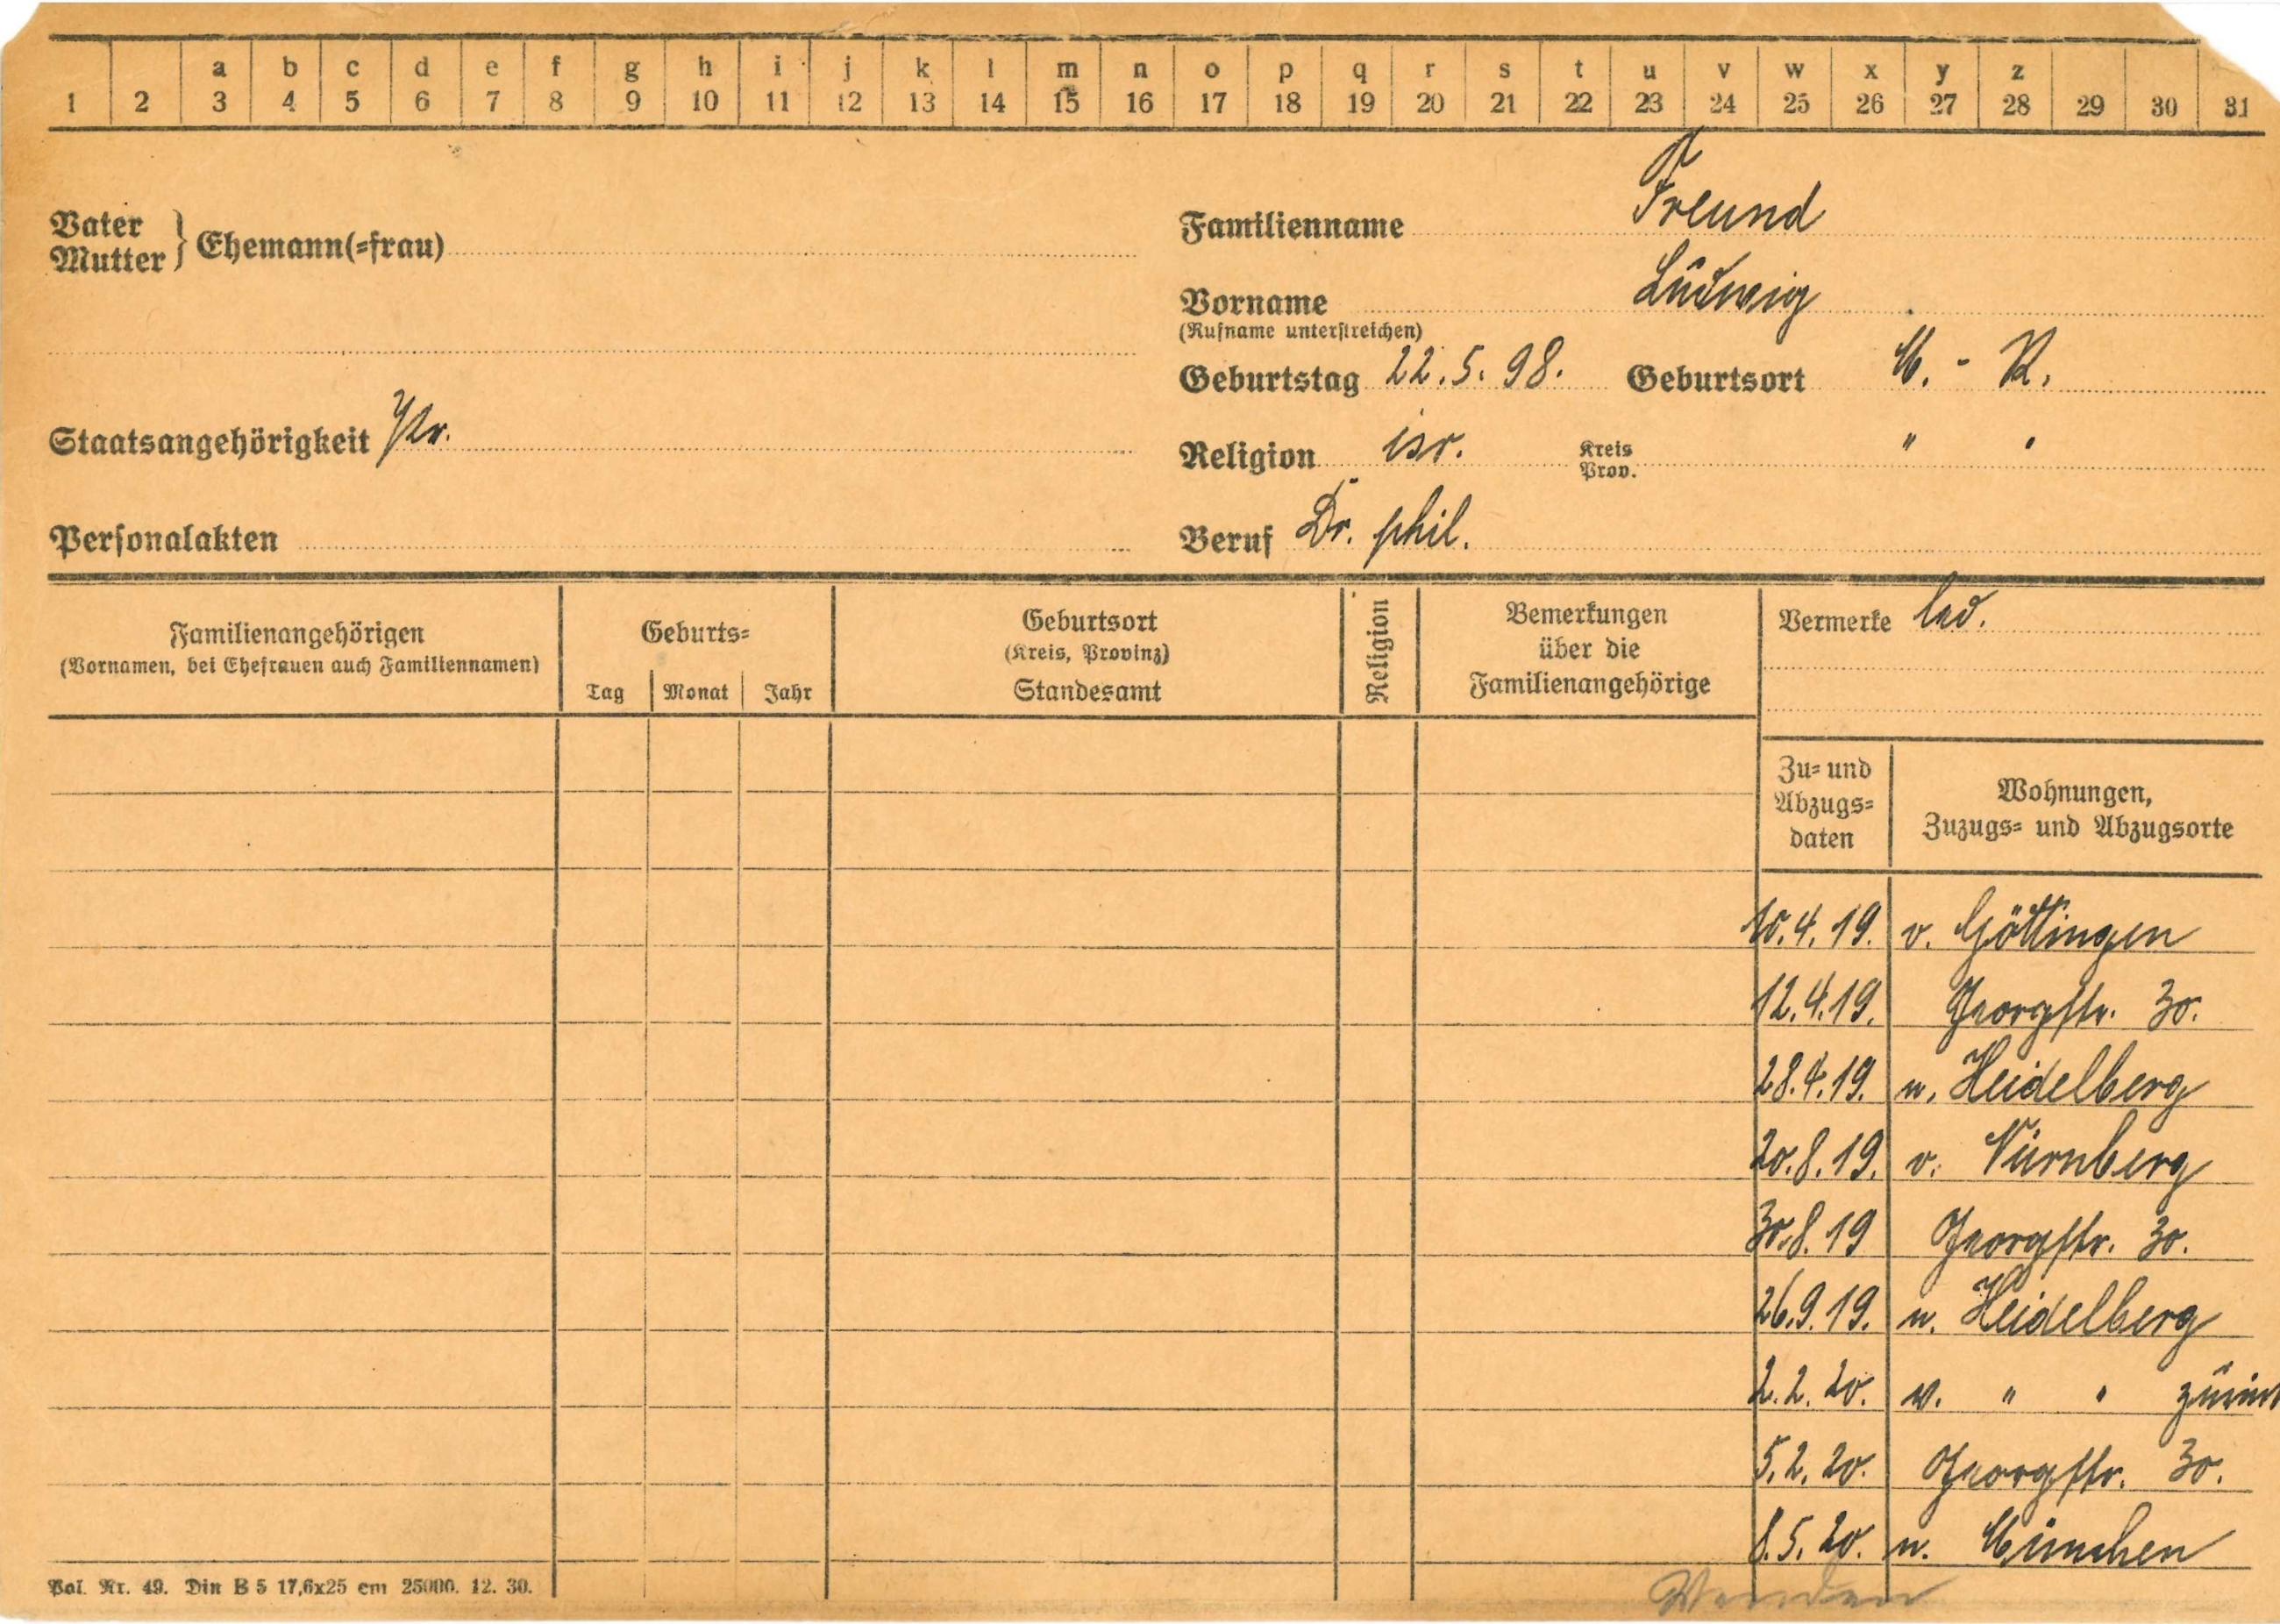 a b c d e f g h i j k l m n o p q r s t u v w x y z
1 2 3 4 5 6 7 8 9 10 11 12 13 14 15 16 17 18 19 20 21 22 23 24 25 26 27 28 29 30 31
Vater
Mutter } Ehemann(=frau)
Staatsangehörigkeit Pr.
Personalakten
F
Familienname Freund
Vorname Ludwig
(Rufname unterstreichen)
Geburtstag 22.5.98. Geburtsort M. - R.
Religion isr. Kreis
Prov. " "
Beruf Dr. phil.
Familienangehörigen
(Vornamen, bei Ehefrauen auch Familiennamen)
Geburts=
Tag Monat Jahr
Geburtsort
(Kreis, Provinz)
Standesamt
Religion
Bemerkungen
über die
Familienangehörige
Vermerke led.
Zu= und
Abzugs=
daten
Wohnungen,
Zuzugs= und Abzugsorte
10.4.19. v. Göttingen
12.4.19. Georgstr. 30.
28.4.19. n. Heidelberg
20.8.19. v. Nürnberg
30.8.19 Georgstr. 30.
26.9.19. n. Heidelberg
2.2.20. v. " " zurück
5.2.20. Georgstr. 30.
8.5.20. n. München
Wenden
Pol. Nr. 49. Din B 5 17,6x25 cm 25000. 12. 30.